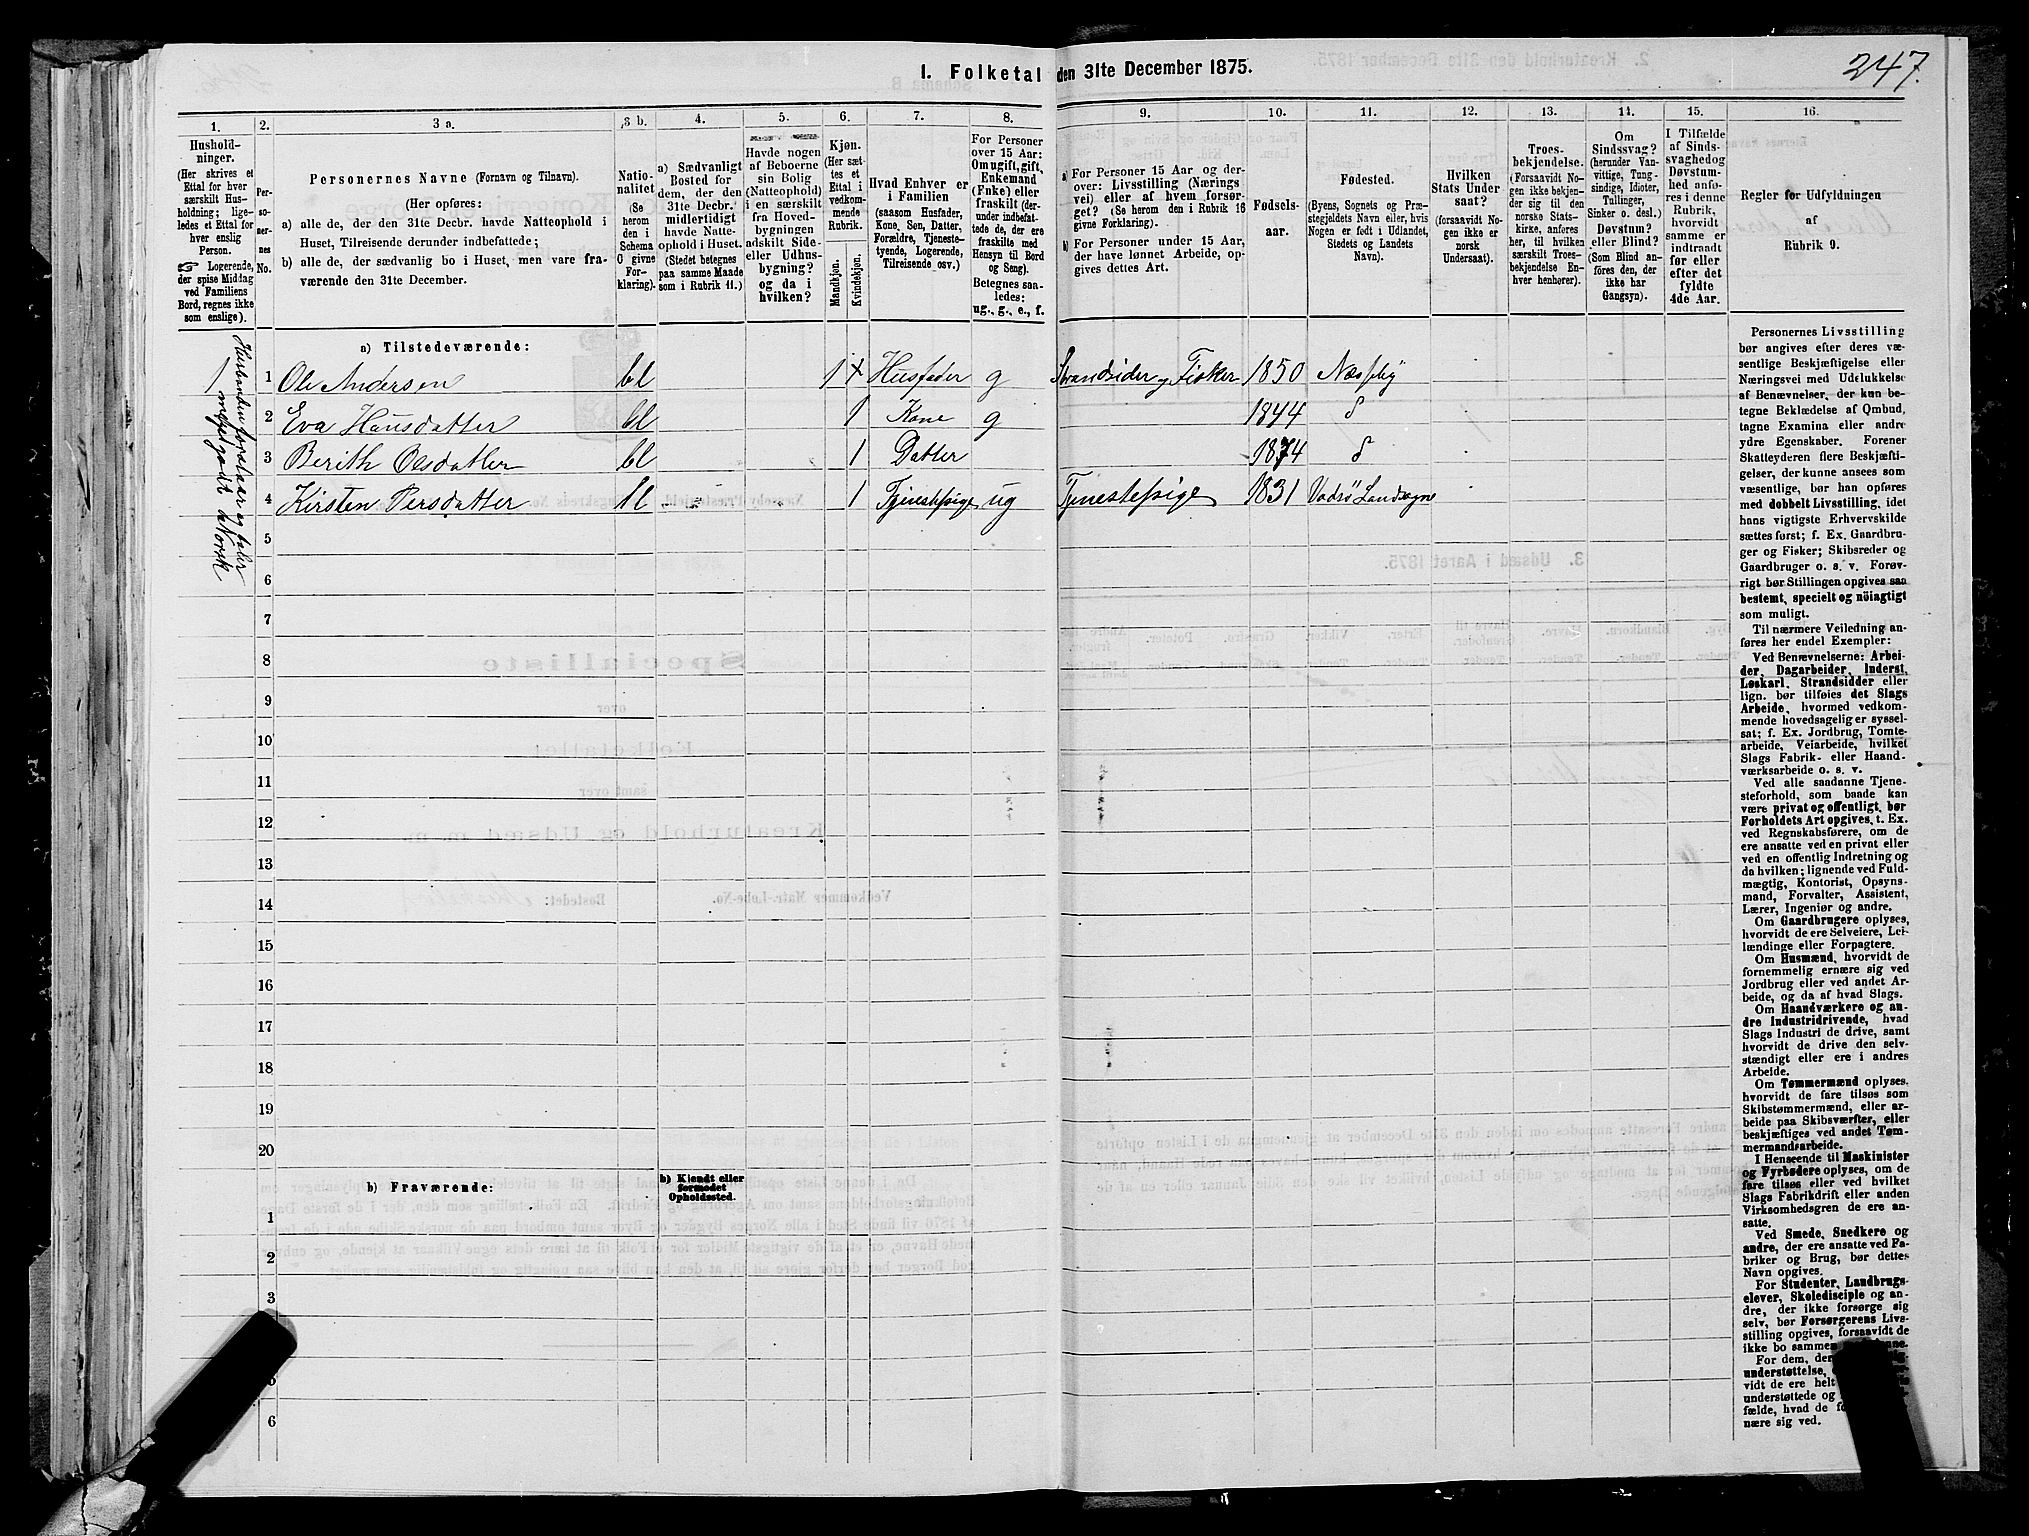 247.
I. Folketal den 31te December 1875.
1. 2. 3 a. 3 b. 4. 5. 6. 7. 8. 9. 10. 11. 12. 13. 14. 15. 16.
Hushold-
ninger.
(Her skrives et
Ettal for hver
særskilt Hus-
holdning; lige-
ledes et Ettal for
hver enslig
Person.
Logerende,
der spise Middag
ved Familiens
Bord, regnes ikke
som enslige).
Per-
so-
ner-
nes
No.
Personernes Navne (Fornavn og Tilnavn).
(Her opføres:
a) alle de, der den 31te Decbr. havde Natteophold i
Huset, Tilreisende derunder indbefattede;
b) alle de, der sædvanlig bo i Huset, men vare fra-
værende den 31te December.
Natio-
nalitet
(Se
herom
den i
Schema
C givne
For-
klaring).
a) Sædvanligt
Bosted for
dem, der den
31te Decbr.
midlertidigt
havde Natte-
ophold i Huset.
(Stedet betegnes
paa samme Maade
som i Rubrik 11.)
Havde nogen
af Beboerne
sin Bolig
(Natteophold)
i en særskilt
fra Hoved-
bygningen
adskilt Side-
eller Udhus-
bygning?
og da i
hvilken?
Kjøn.
(Her sæt-
tes et
Ettal i
vedkom-
mende
Rubrik.
Mandkjøn.
Kvindekjøn.
Hvad Enhver er
i Familien
(saasom Husfader,
Kone, Søn, Datter,
Forældre, Tjeneste-
tyende, Logerende,
Tilreisende osv.)
For Personer
over 15 Aar:
Om ugift, gift,
Enkemand
(Enke) eller
fraskilt (der-
under indbefat-
tede de, der ere
fraskilte med
Hensyn til Bord
og Seng).
Betegnes saa-
ledes:
ug., g., e., f.
a) For Personer 15 Aar og der-
over: Livsstilling (Nærings
vei) eller af hvem forsør-
get? (Se herom den i Rubrik 16
givne Forklaring).
b) For Personer under 15 Aar,
der have lønnet Arbeide, op-
gives dettes Art.
Fødsels-
aar.
Fødested.
(Byens, Sognets og Præ-
stegjeldets Navn eller, hvis
Nogen er født i Udlandet,
Stedets og Landets
Navn).
Hvilken
Stats Under
saat?
(forsaavidt No-
gen ikke er
norsk
Undersaat).
Troes-
bekjendelse.
(Forsaavidt No-
gen ikke bekjen-
der sig til den
norske Stats-
kirke, anføres
her, til hvilken
særskilt Troes-
bekjendelse En-
hver henhører).
Om
Sindssvag?
(herunder Van-
vittige, Tung-
sindige, Idioter,
Tullinger,
Sinker o. desl.)
Døvstum?
eller Blind?
(Som Blind an-
føres den, der
ikke har
Gangsyn).
I Tilfælde
af Sinds-
svaghed og
Døvstum-
hed anfø-
res i denne
Rubrik,
hvorvidt
samme er
indtraadt
før eller
efter det
fyldte
4de Aar.
Regler før Udfyldningen
af
Rubrik 9.
a) Tilstedeværende:
1 1 Ole Andersen bl 1 Husfader g Strandsider og Fisker 1850 Næsseby
2 Eva Hansdatter bl 1 Kone g 1844
3 Berith Olsdatter bl 1 Datter 1874
4 Kirsten Persdatter 1 Tjenestepige ug Tjenestepige 1831 Vadsø Landsogn
Husbonden forstaar og taler
meget godt Norsk
5
6
7
8
9
10
11
12
13
14
15
16
17
18
19
20
b) Fraværende:
b) Kjendt eller
formodet
Opholdssted.
1
2
3
6
Personernes Livsstilling
bør angives efter deres væ-
sentlige Beskjæftigelse eller
Næringsvei med Udelukkelse
af Benævnelser, der kun be-
tegne Beklædelse af Ombud,
tagne Examina eller andre
ydre Egenskaber. Forener
Skatteyderen flere Beskjæfti-
gelser, der kunne ansees som
væsentlige, bør han opføres
med dobbelt Livsstilling, idet
hans vigtigste Erhvervskilde
sættes først; f. Ex. Gaardbru-
ger og Fisker; Skibsreder og
Gaardbruger o. s. v. Forøv-
rigt bør Stillingen opgives saa
bestemt, specielt og nöiagtigt
som muligt.
Til nærmere Veiledning an-
føres her endel Exempler:
Ved Benævnelserne: Arbei-
der, Dagarbeider, Inderst,
Løskarl, Strandsidder eller
lign. bør tilføies det Slags
Arbeide, hvormed vedkom-
mende hovedsagelig er syssel-
sat; f. Ex. Jordbrug, Tomte-
arbeide, Veiarbeide, hvilket
Slags Fabrik- eller Haand-
værksarbeide o. s. v.
Ved alle saadanne Tjene-
steforhold, som baade kan
være privat og offentligt, bør
Forholdets Art opgives, t. Ex.
ved Regnskabsførere, om de
ere ansatte ved en privat eller
ved en offentlig Indretning og
da hvilken; lignende ved Fuld-
mægtig, Kontorist, Opsyns-
mand, Forvalter, Assistent,
Lærer, Ingeniør og andre.
Om Gaardbrugere oplyses,
hvorvidt de ere Selveiere, Lei-
lændinge eller Forpagtere.
Om Husmænd, hvorvidt de
fornemmelig ernære sig ved
Jordbrug eller ved andet Ar-
beide, og da af hvad Slags.
Om Haandværkere og an-
dre Industridrivende, hvad
Slags Industri de drive, samt
hvorvidt de drive den selv-
stændigt eller ere i andres
Arbeide.
Om Tømmermænd oplyses,
hvorvidt de fare tilsøs som
Skibstømmermænd, eller ar-
beide paa Skibsværfter, eller
beskjæftiges ved andet Tøm-
mermandsarbeide.
I Henseende til Maskinister
og Fyrbødere oplyses, om de
fare tilsøs eller ved hvilket
Slags Fabrikdrift eller anden
Virksomhedsgren de ere an-
satte.
Ved Smede, Snedkere og
andre, der ere ansatte ved Fa-
briker og Brug, bør dettes
Navn opgives.
For Studenter, Landbrugs-
elever, Skoledisciple og an-
dre, der ikke forsørge sig
selv, bør Forsørgerens Livs-
stilling opgives, forsaavidt de
ikke bo sammen
For dem, der
understøttelse,
vidt de ere helt
understøttede og
fælde, hvad de
nære sig ved.